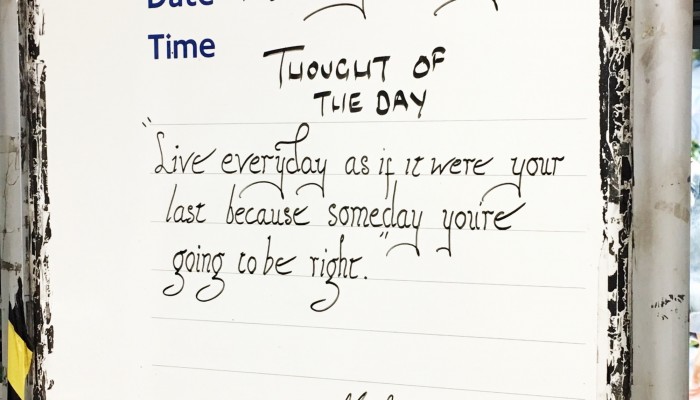 Date
Time
THOUGHT OF
THE DAY
"Live everyday as if it were your
last because someday you're
going to be right."